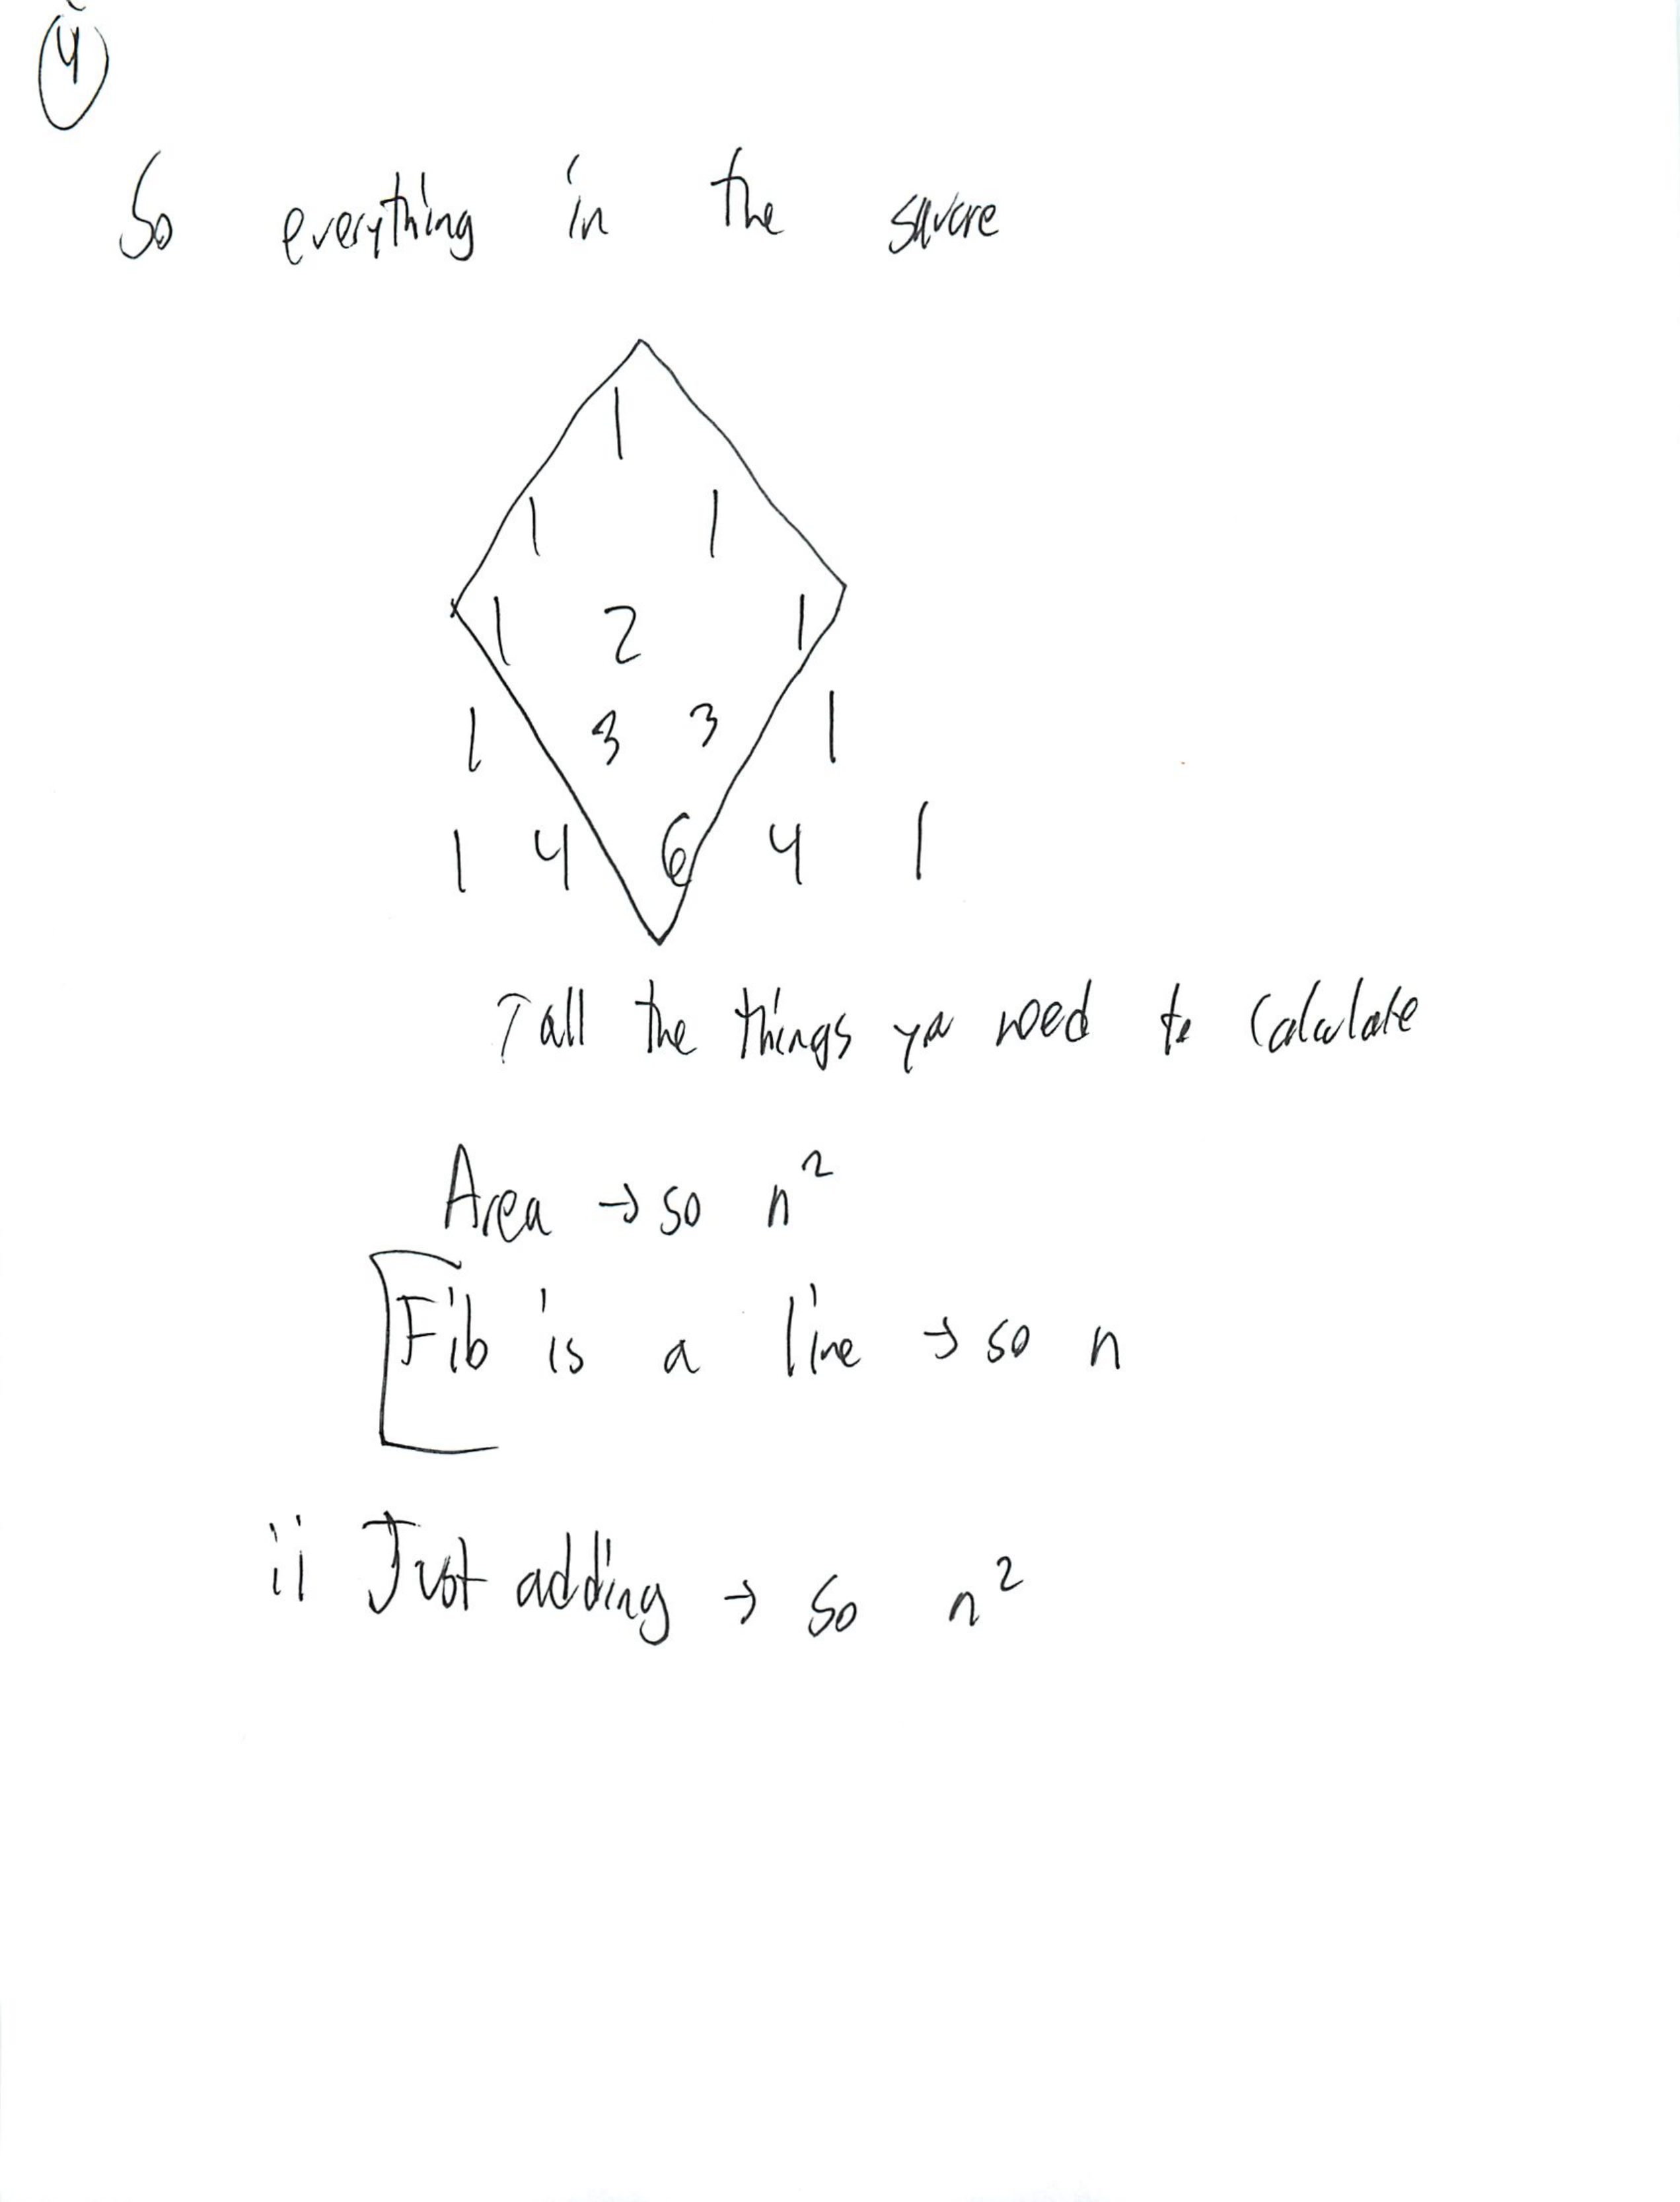 4
So everything in the square
1
1 1
1 2 1
1 3 3 1
1 4 6 4 1
↑ all the things you need to calculate
Area → so n²
[Fib is a line → so n
ii Just adding → so n²